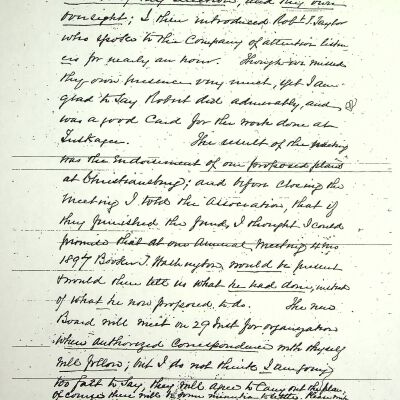 thy direction, and thy own
oversight; I then introduced Robt. J. Taylor
who spoke to the Company of attention listen
ers for nearly an hour. Though we missed
thy own presence very much, yet I am
glad to say Robert did admirably, and
was a good Card for the work done at
Tuskagee. The result of the meeting
was the Endorsement of our proposed plans
at Christiansburg; and before closing the
Meeting I told the Association, that if
they furnished the fund, I thought I could
promise that at our Annual Meeting 4 mo
1897 Booker T. Washington, would be present
& would then tell us what he had done, instead
of what he now proposed, to do. The new
Board will meet on 29 Inst for organization
when authorized Correspondence with thyself
will follow; but I do not think I am going
too fast to say, they will agree to Carry out the plan,
of course there will be from minutes to letter.